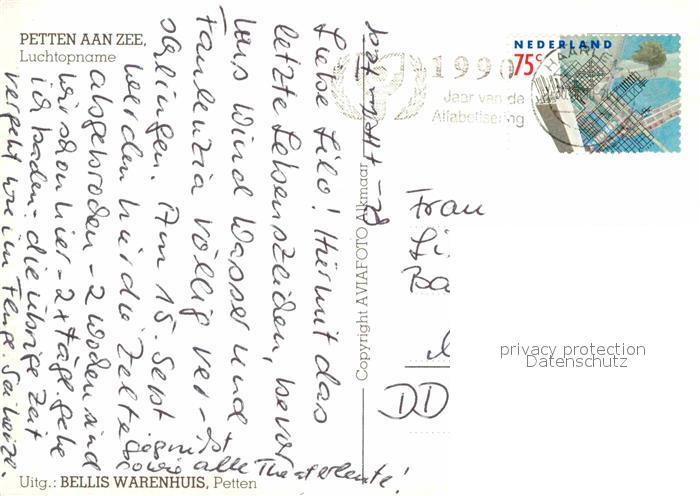 PETTEN AAN ZEE,
Luchtopname
Liebe Lilo! Hiermit das
letzte Lebenszeichen, bevor
uns Wind Wasser und
Faulenzia völlig ver-
schlingen. Am 15. Sept
werden hier die Zelte
abgebrochen - 2 Wochen sind
wir schon hier - 2 x täglich gehe
ich baden - die übrige Zeit
vergeht wie im Fluge. Sei herzl.
gegrüßt
sowie alle Theaterleute!
Uitg.: BELLIS WARENHUIS, Petten
Copyright AVIAFOTO Alkmaar
NEDERLAND
75c
1990
Jaar van de
Alfabetisering
HAARLEM
Frau
Li
Ba
DD
privacy protection
Datenschutz